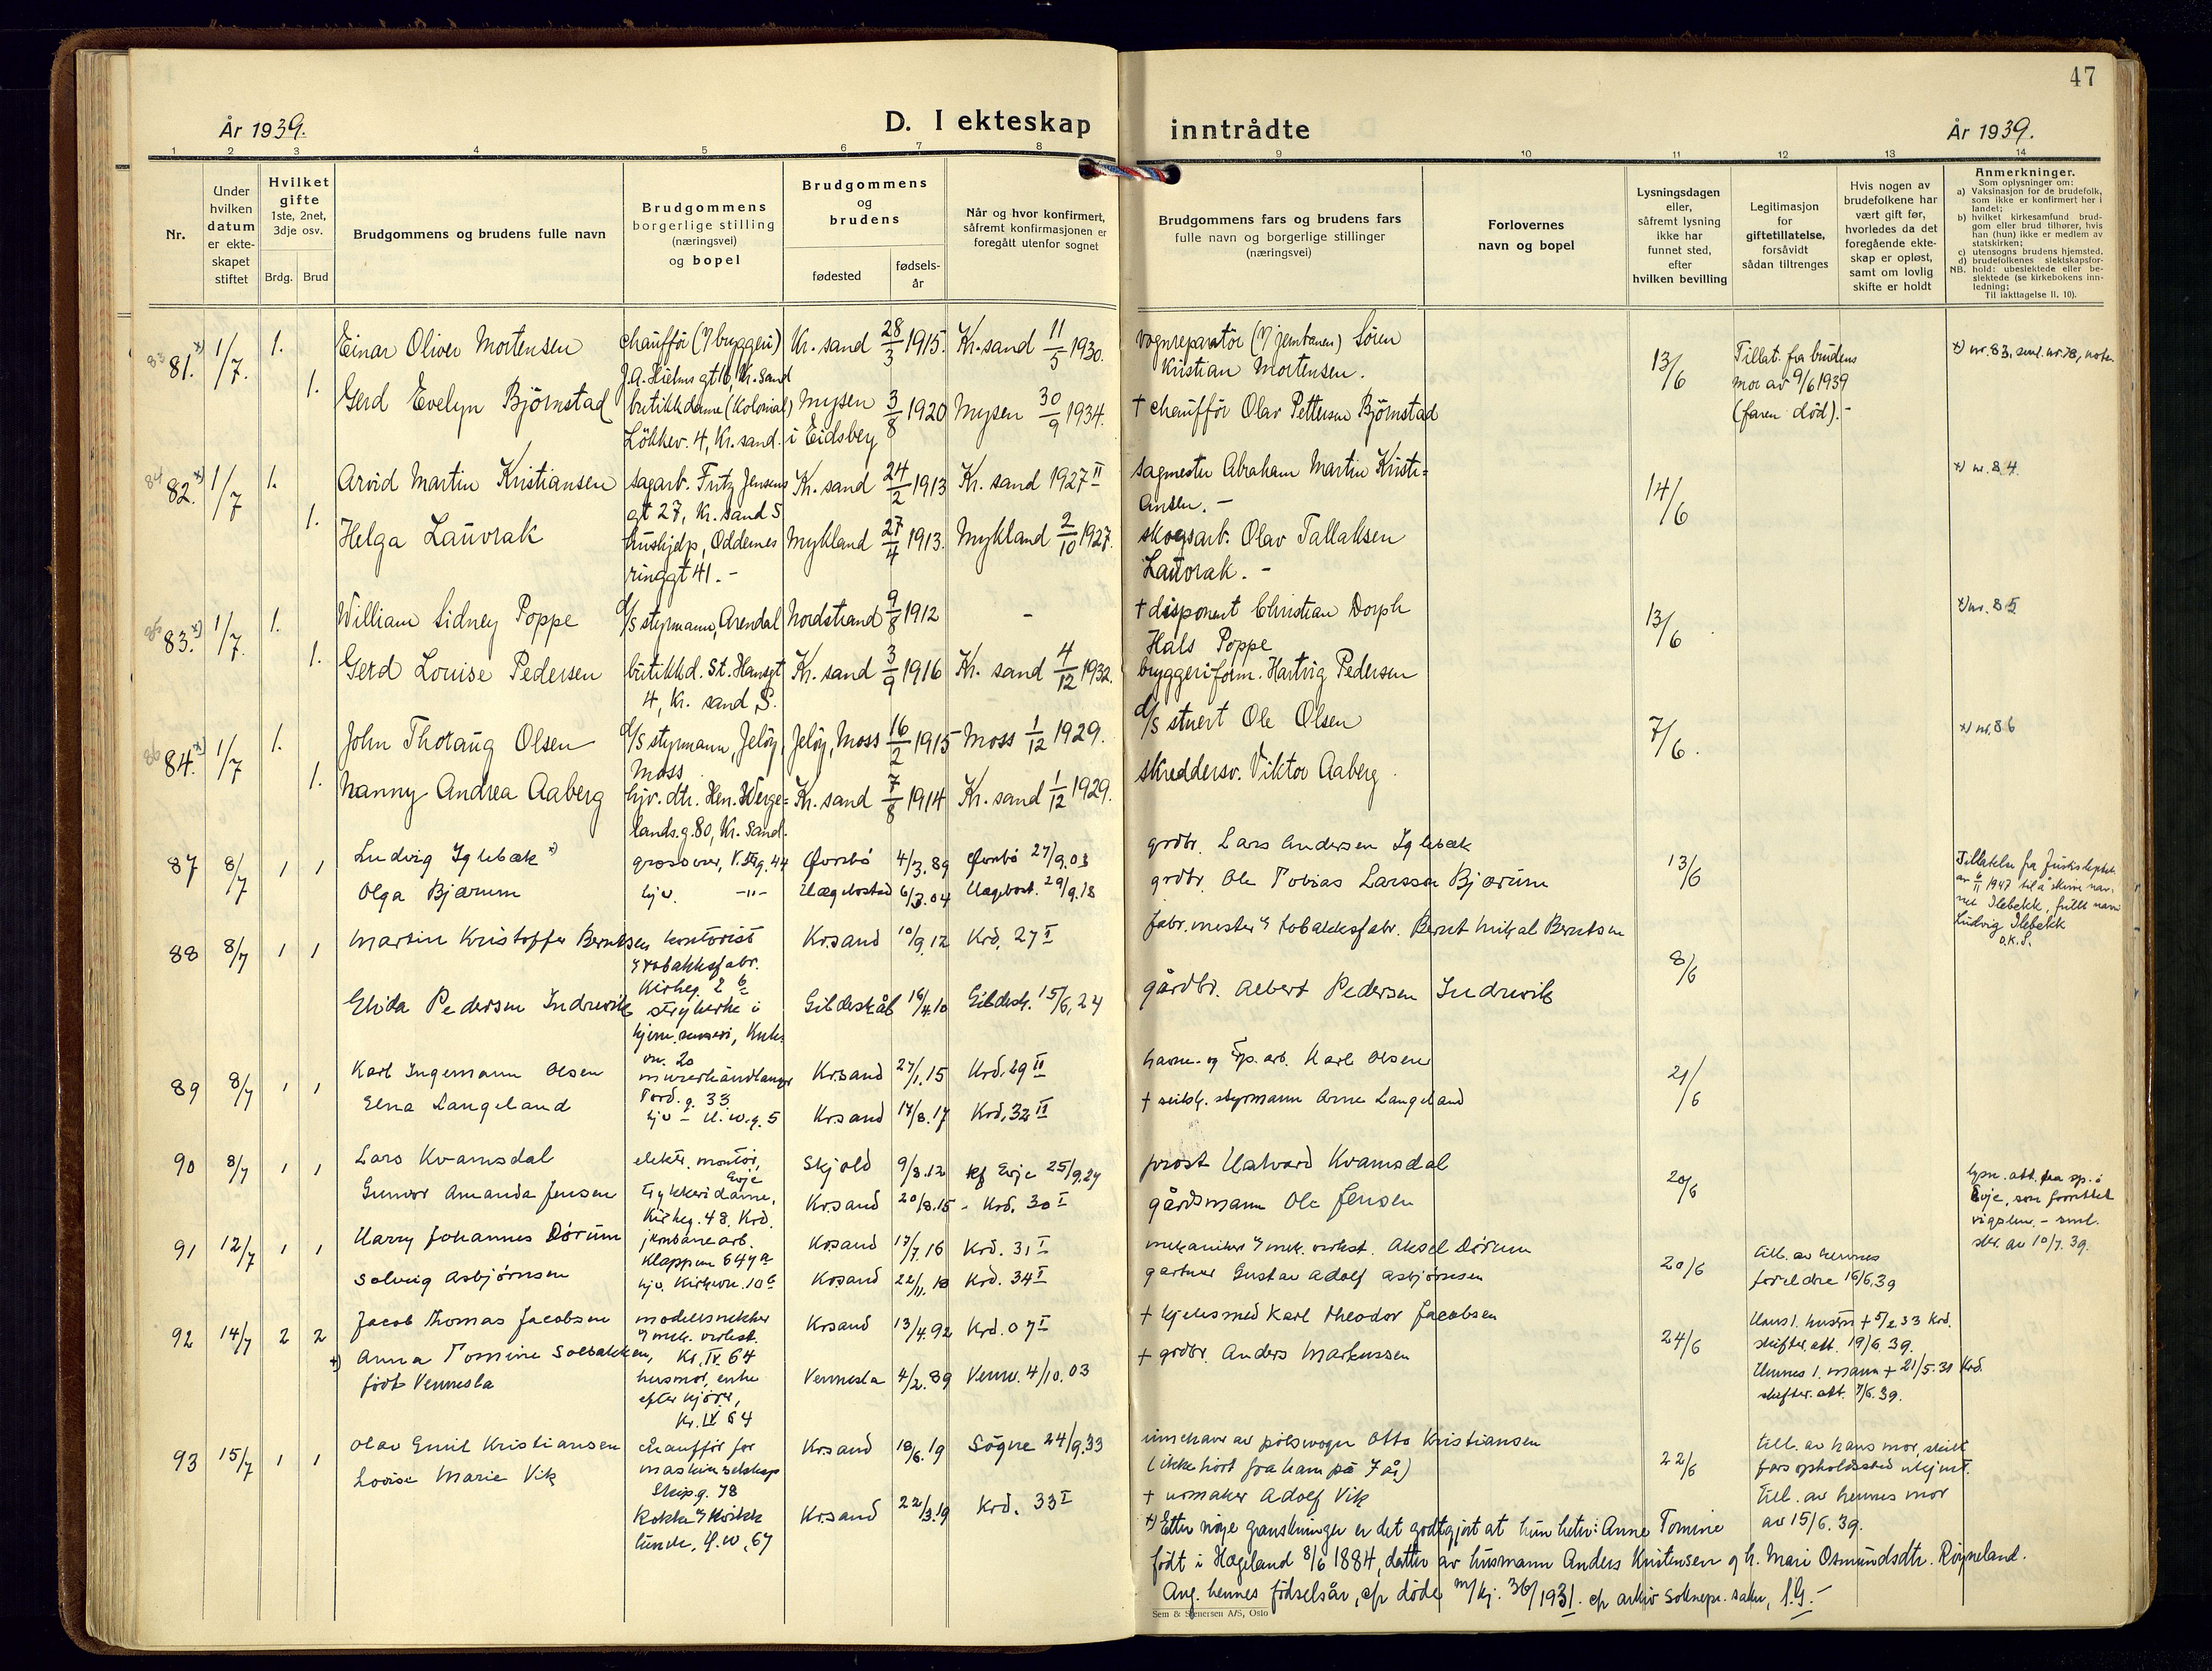 47
År 1939.
D. I ekteskap inntrådte
År 1939.
1 2 3 4 5 6 7 8 9 10 11 12 13 14
Nr.
Under hvilken datum er ekte- skapet stiftet
Hvilket gifte 1ste, 2net, 3dje osv.
Brdg. Brud
Brudgommens og brudens fulle navn
Brudgommens borgerlige stilling (næringsvei) og bopel
Brudgommens og brudens
fødested
fødsels- år
Når og hvor konfirmert, såfremt konfirmasjonen er foregått utenfor sognet
Brudgommens fars og brudens fars fulle navn og borgerlige stillinger (næringsvei)
Forlovernes navn og bopel
Lysningsdagen eller, såfremt lysning ikke har funnet sted, efter hvilken bevilling
Legitimasjon for giftetillatelse, forsåvidt sådan tiltrenges
Hvis nogen av brudefolkene har vært gift før, hvorledes da det foregående ekte- skap er opløst, samt om lovlig skifte er holdt
Anmerkninger.
Som oplysninger om:
a) Vaksinasjon for de brudefolk, som ikke er konfirmert her i landet;
b) hvilket kirkesamfund brud- gom eller brud tilhører, hvis han (hun) ikke er medlem av statskirken;
c) utensogns brudens hjemsted,
d) brudefolkenes slektskapsfor- hold: ubeslektede eller be- slektede (se kirkebokens inn- ledning;
NB. Til iakttagelse II. 10).
83 81. x) 1/7. 1. Einar Oliver Mortensen chauffór (i/ bryggeri) Kr. sand 28/3 1915. Kr. sand 11/5 1930. vognreparatör (v/ jernbanen) Sören 13/6 Tillat. fra brudens x) nr. 83, sml. nr 78, noten
J.A. Hielms gt 16, Kr. sand Kristian Mortensen. mor av 9/6 1939
1. Gerd Evelyn Björnstad butikkdame (Kolonial) Mysen 3/8 1920 Mysen 30/9 1934. † chauffór Olav Pettersen Björnstad (faren död).-
Lökkev. 4, Kr. sand. i Eidsberg
84 82. x) 1/7 1. Arvid Martin Kristiansen sagarb. Fritz Jensens Kr. sand 24/2 1913 Kr. sand 1927 II sagmester Abraham Martin Kristi= 14/6 x) nr. 84.
gt 27, Kr. sand S ansen. -
1. Helga Lauvrak hushjelp, Oddernes Mykland 27/4 1913. Mykland 2/10 1927. skogsarb. Olav Tallaksen
ringgt 41. - Lauvrak. -
85 83. x) 1/7. 1. William Sidney Poppe d/s styrmann, Arendal Nordstrand 9/8 1912 - † disponent Christian Dorph 13/6 x) nr. 85
Hals Poppe
1. Gerd Louise Pedersen butikkd. St. Hansgt Kr. sand 3/9 1916 Kr. sand 4/12 1932. bryggeriform. Hartvig Pedersen
4, Kr. sand S.
86 84. x) 1/7 1. John Thoraug Olsen d/s styrmann, Jelöy, Jelöy, Moss 16/2 1915 Moss 1/12 1929. d/s stuert Ole Olsen 7/6. x) nr. 86
Moss
1. Nanny Andrea Aaberg hjv. dtr. Hen. Werge= Kr. sand 7/8 1914 Kr. sand 1/12 1929. skreddersv. Viktor Aaberg
lands. g. 80, Kr. sand.
87 8/7 1 1 Ludvig Iglebæk x) grosserer, V. Stg. 44 Øvrebö 4/3.89 Øvrebö 27/9.03 grdbr. Lars Andersen Iglebæk 13/6
Olga Bjærum hjv. -"- Hægebostad 6/3.04 Hægebost. 29/9.18 grdbr. Ole Tobias Larssen Bjærum
av 6/11 1947 til å skrive nav-
net Ilebekk, fullt navn
Ludvig Ilebekk
O.K.S.
88 8/7 1 1 Martin Kristoffer Berntsen kontorist Krsand 10/9.12 Krd. 27 I fabr. mester i tobakksfabr. Bernt Mikal Berntsen 8/6
i tobakksfabr.
Kirkeg. 2 b
Elida Pedersen Indrevik strykerske i Gildeskål 16/4.10 Gildesk. 15/6.24 gårdbr. Albert Pedersen Indrevik
20
89 8/7 1 1 Karl Ingemann Olsen murerhåndlanger Krsand 27/1.15 Krd. 29 II havne- og arb. Karl Olsen 21/6
Tord. g. 33
Elna Langeland hjv - H.W.g. 5 Krsand 14/8.17 Krd. 32 II † seilsk. styrmann Arne Langeland
90 8/7 1 1 Lars Kvamsdal elektr. montör, Skjold 9/8.12 kf Evje 25/9.27 prost Halvard Kvamsdal 20/6 lysn. att. fra sp. i
Evje Evje, som forrettet
Gunvor Amanda Jensen trykkeridame, Krsand 20/8.15 - Krd. 30 I gårdsmann Ole Jensen vigslen. - sml.
Kirkeg. 48, Krd. skr. av 10/7.39.
91 12/7 1 1 Harry Johannes Dörum jernbanearb. Krsand 17/7.16 Krd. 31 I mekaniker i mek. verkst. Aksel Dörum 20/6 till. av hennes
Klappum 644 a foreldre 16/6.39
Solveig Asbjörnsen hjv. Kirkevn. 10 c Krsand 22/11.18 Krd. 34 I gartner Gustav Adolf Asbjörnsen
92 14/7 2 2 Jacob Thomas Jacobsen modellsnekker Krsand 13/4.92 Krd. 07 I † kjelesmed Karl Theodor Jacobsen 24/6 Hans 1. hustru † 5/2 33 Krd.
i mek. verkst. skifteratt. 19/6.39.
x) Anna Tomine Solbakken, Kr. IV. 64 † grdbr. Anders Markussen Hennes 1. mann † 21/5.31 Krd.
född Vennesla husmor, enke Vennesla 4/2.89 Venn. 4/10.03 skifter. att. 7/6.39.
efter kjörer,
Kr. IV 64
93 15/7 1 1 Olav Emil Kristiansen chauffór for Krsand 18/6.19 Sögne 24/9.33 innehaver av pölsevogn Otto Kristiansen 22/6 till. av hans mor, skilt
maskinselskap (ikke hört fra ham på 7 år) fars opholdssted ukjent.
Lovise Marie Vik Skipg. 78 till. av hennes mor
Krsand 22/3.19 Krd. 33 I † urmaker Adolf Vik av 15/6.39.
H.W. 67
x) Etter nöye granskninger er det godtgjort at hun heter: Anne Tomine
född i Hægeland 8/6 1884, datter av husmann Anders Knutensen og h. Mari Osmundsdtr. Röyneland.
Ang. hennes födselsår, cfr döde m/kj: 36/1931. cfr arkiv Soknepr. saker, S.G.-
Sem & Stenersen A/S, Oslo